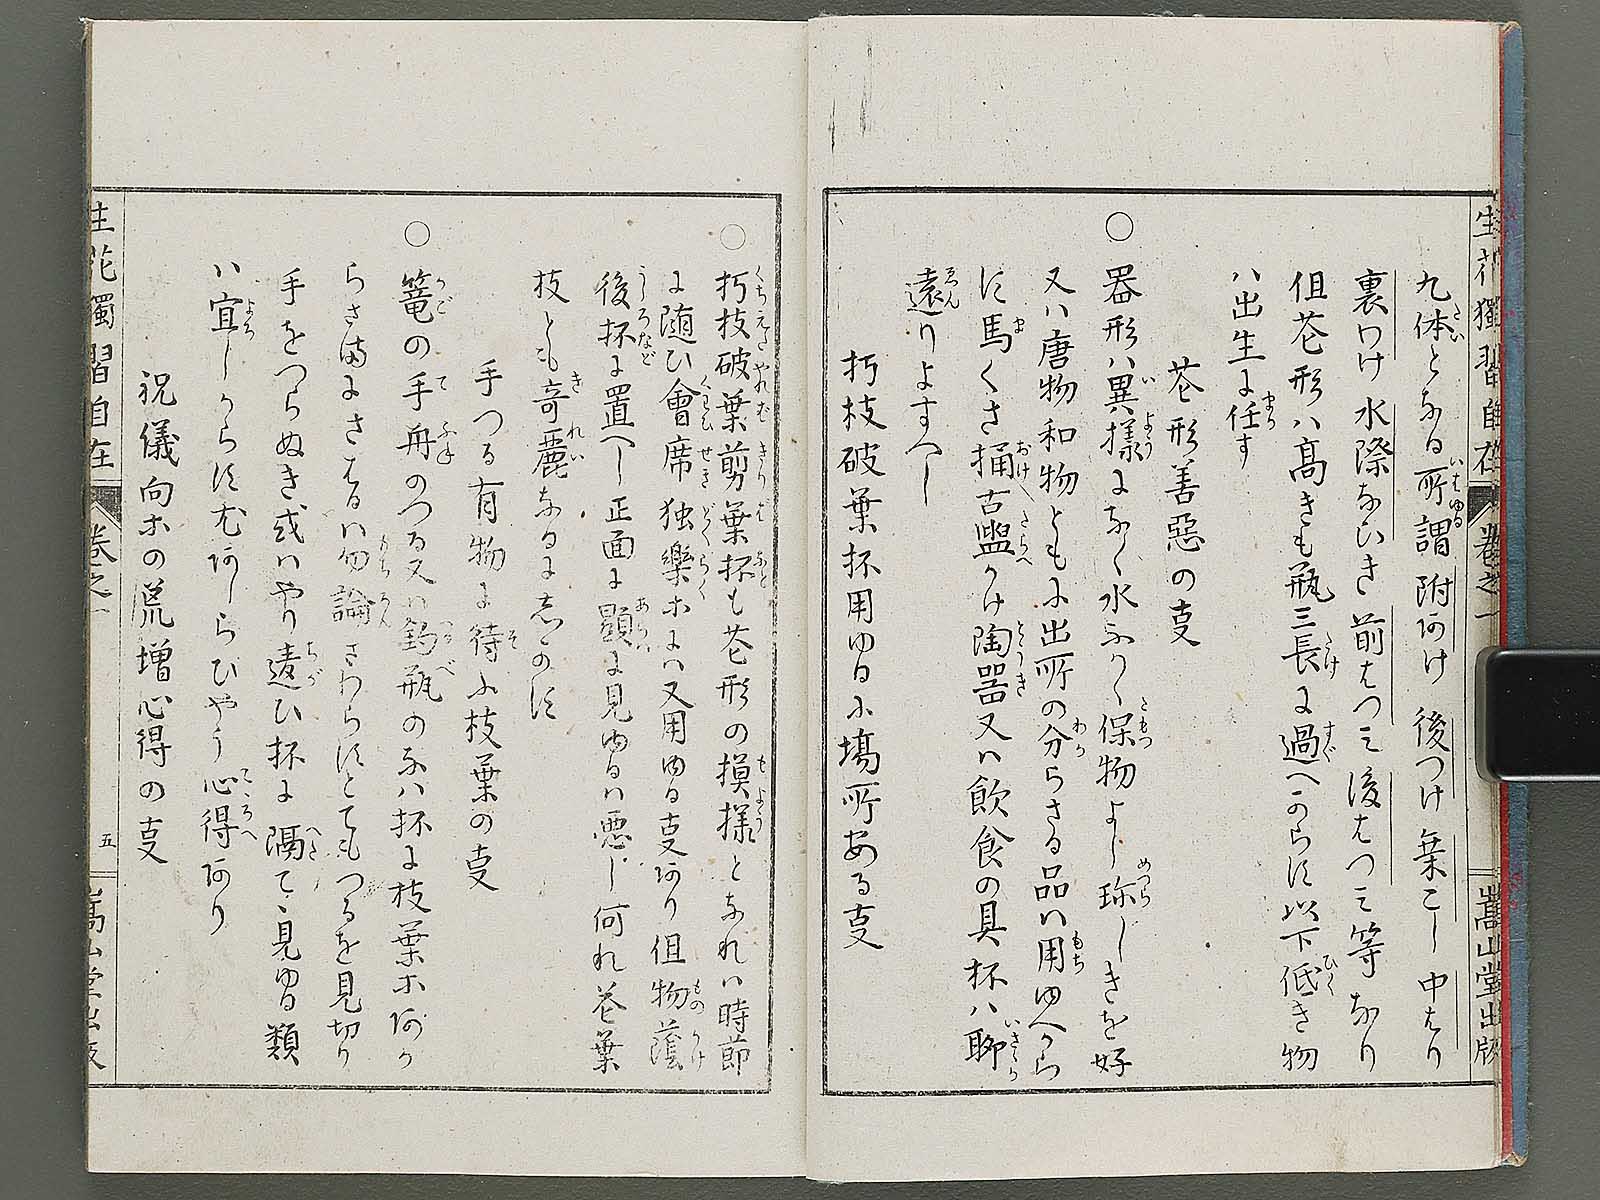 生花獨習自在 卷之一 嵩山堂出版
九体となる所謂 附河け 後つけ 葉こし 中はり
裏わけ 水際ならひき 前はつミ 後はつミ等なり
但花形ハ髙きも瓶三長に過へからす以下低き物
ハ出生に任す
花形善惡の㕝
○器形ハ異様になく水ふかく保物よし珎しきを好
又ハ唐物和物ともに出所の分らさる品ハ用ゆへから
す馬くさ桶古盥かけ陶器又ハ飲食の具抔ハ聊
遠りよすへし
朽枝破葉抔用ゆるに塲所ある㕝
○朽枝破葉剪葉抔も花形の摸様となれハ時節
に随ひ會席独樂ホにハ又用ゆる㕝あり但物蔭
後抔に置へし正面に顕に見ゆるハ悪し何れ花葉
枝とも竒麗なるにしかす
手つる有物に待ふ枝葉の㕝
○篭の手舟のつる又ハ釣瓶のなハ抔に枝葉ホあか
らさまにさはるハ勿論さわらすとてもつるを見切り
手をつらぬき或ハやり違ひ抔に隔て見ゆる類
ハ宜しからす尤あしらひやう心得あり
祝儀向ホの荒増心得の㕝
生花獨習自在 卷之一 五 嵩山堂出版